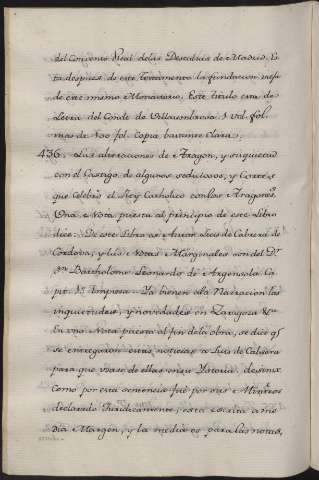 del Convento Real delas Descalzas de Madrid. Es
ta despues de este Testamento la fundacion
de este mismo Monasterio. Este titulo esta de
Letra del Conde de Villaumbrosa 1 Vol. fol.
mas de 400 fol. Copia bastante clara.
436. Las alteraciones de Aragon, y su quietud
con el Castigo de algunos sediciosos, y Cortes
que Celebró el Rey Catholico con los Aragones.s
Una Nota puesta al principio de este Libro
dice: De este Libro es Autor Luis de Cabrera de
Cordova, y las Notas Marginales son del D.r
Bartholome Leonardo de Argensola. Ca
pit. 1.º Empieza: Ya bienen ála Narracion las
inquietudes, y novedades en Zaragoza &a
En una Nota puesta al fin de la obra, se dice q.e
se entregaron estas noticias a Luis de Cabrera
para que usase de ellas en su Ystoria
Como por esta sentencia fué por sus Ministros
declarado Juridicamente; esta escrita a me
dia Margen, y la media es para las notas,